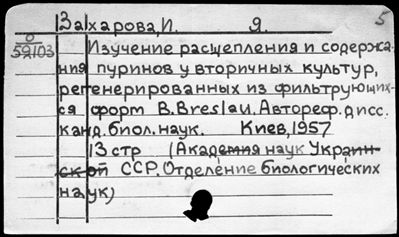 5
Захарова, И. Я.
0
59103
Изучение расщепления и содержа-
ния пуринов у вторичных культур,
регенерированных из фильтрующих-
ся форм B. Breslau. Автореф. дисс.
канд. биол. наук. Киев, 1957
13 стр (Академия наук Украин-
ской ССР. Отделение биологических
наук)